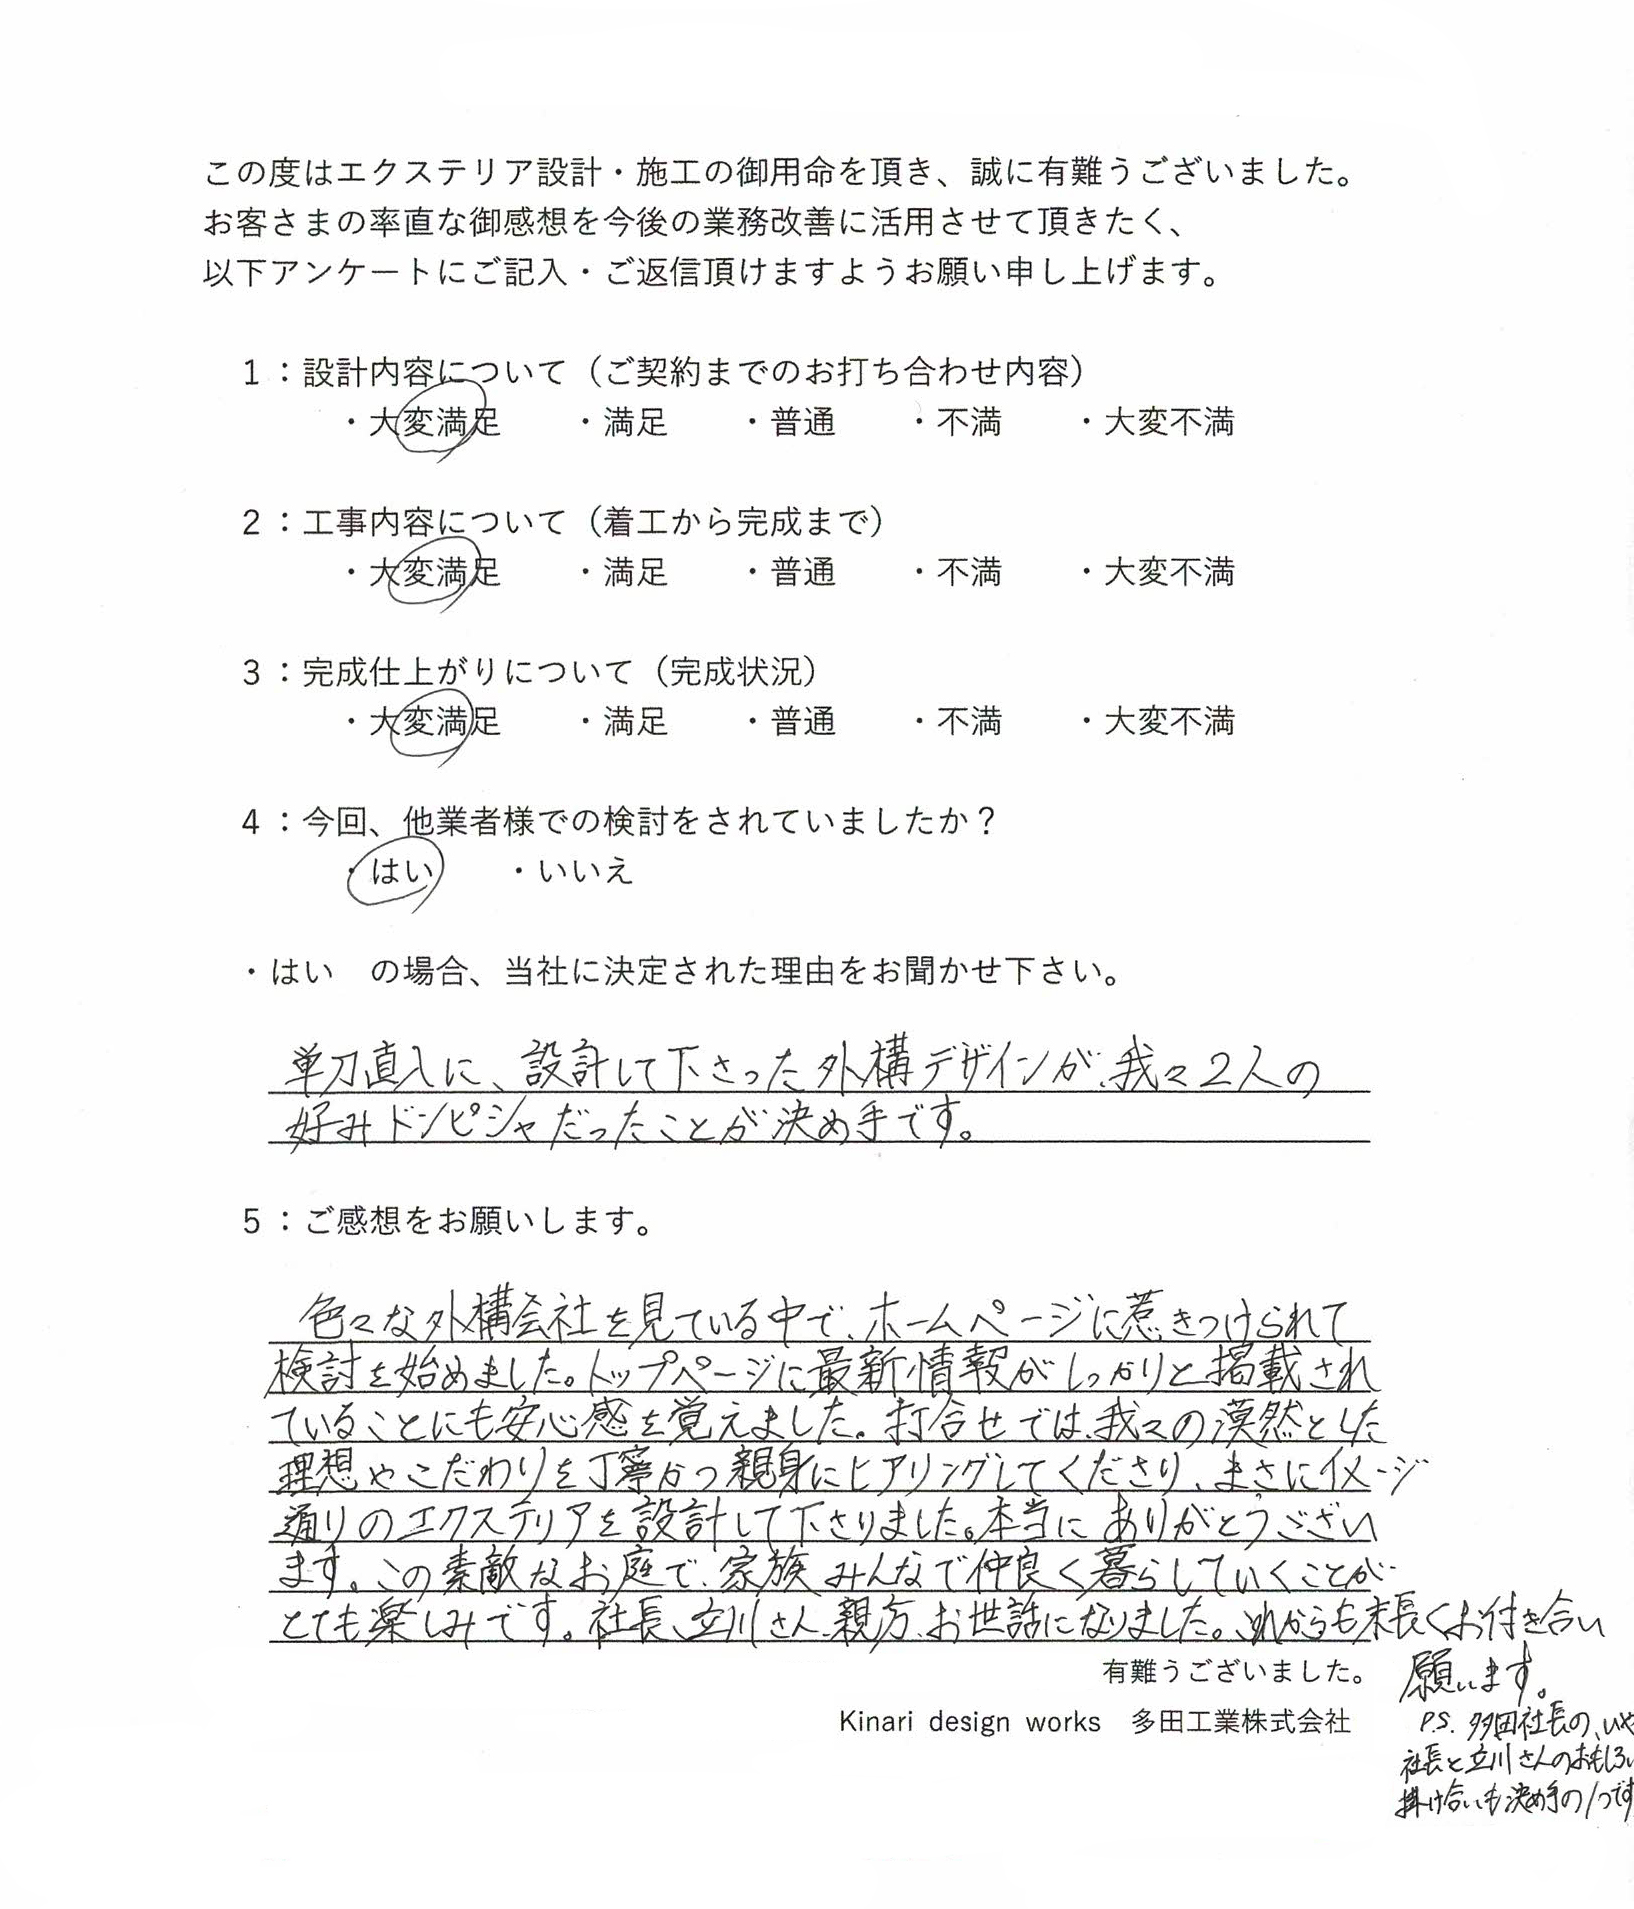 この度はエクステリア設計・施工の御用命を頂き、誠に有難うございました。
お客さまの率直な御感想を今後の業務改善に活用させて頂きたく、
以下アンケートにご記入・ご返信頂けますようお願い申し上げます。
1：設計内容について（ご契約までのお打ち合わせ内容）
・大変満足 ・満足 ・普通 ・不満 ・大変不満
2：工事内容について（着工から完成まで）
・大変満足 ・満足 ・普通 ・不満 ・大変不満
3：完成仕上がりについて（完成状況）
・大変満足 ・満足 ・普通 ・不満 ・大変不満
4：今回、他業者様での検討をされていましたか？
・はい ・いいえ
・はい　の場合、当社に決定された理由をお聞かせ下さい。
単刀直入に、設計して下さった外構デザインが、我々2人の
好みドンピシャだったことが決め手です。
5：ご感想をお願いします。
色々な外構会社を見ている中で、ホームページに惹きつけられて
検討を始めました。トップページに最新情報がしっかりと掲載され
ていることにも安心感を覚えました。打合せでは、我々の漠然とした
理想やこだわりを丁寧かつ親身にヒアリングしてくださり、まさにイメージ
通りのエクステリアを設計して下さりました。本当にありがとうござい
ます。この素敵なお庭で、家族みんなで仲良く暮らしていくことが
とても楽しみです。社長、立川さん、親方、お世話になりました。これからも末長くお付き合い
願います。
有難うございました。
Kinari design works　多田工業株式会社
P.S. 多田社長の、いや
社長と立川さんのおもしろい
掛け合いも決め手の1つです